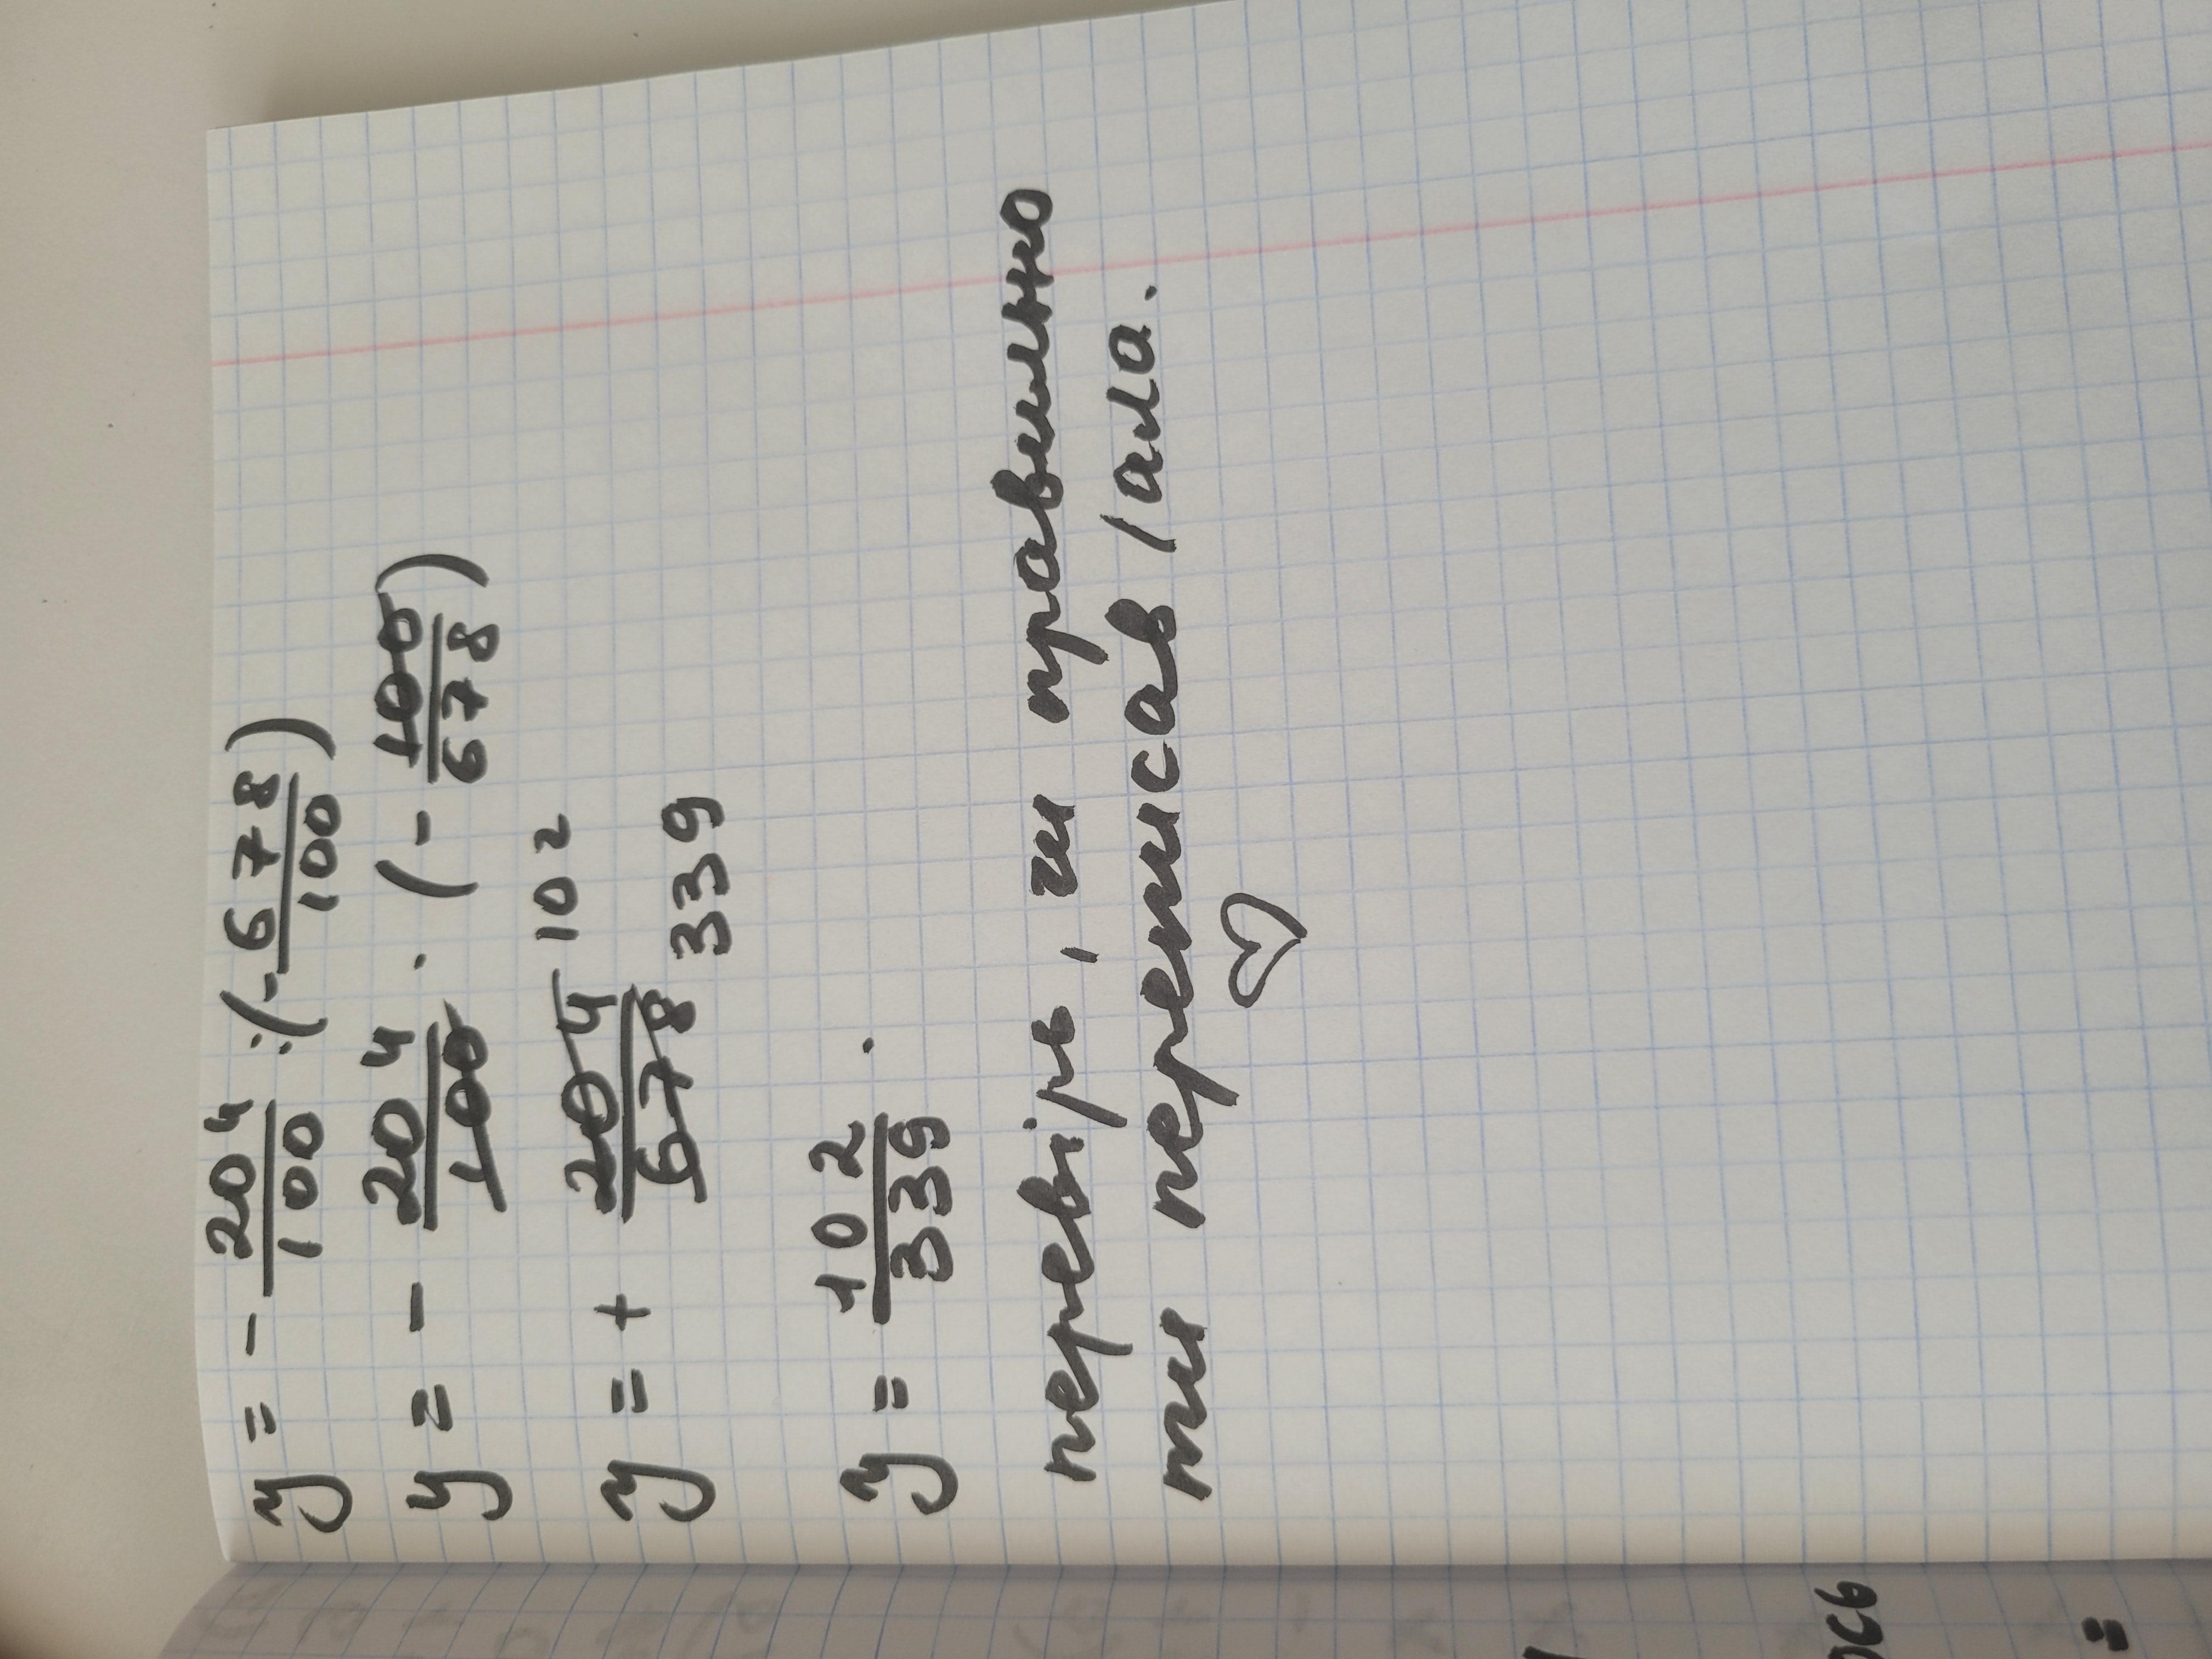 y = - 204/100 : (- 678/100)
y = - 204/100 · (- 100/678)
y = + 204/678 102 339
y = 102/339 .
перевірь, чи правильно
ти переписав / ала.
♡
ось
=